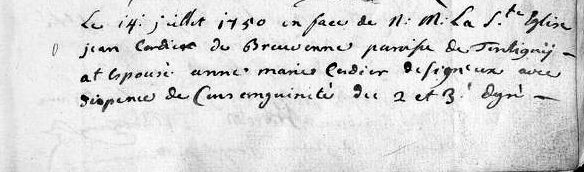 Le 14: juillet 1750 en face de N: M: La S.te Eglise
jean Cordier de Breuvenne paroisse de Tintigny
at Epousé anne marie Cordier de signeux avec
dispence de Consenguinité du 2 et 3.e degré —